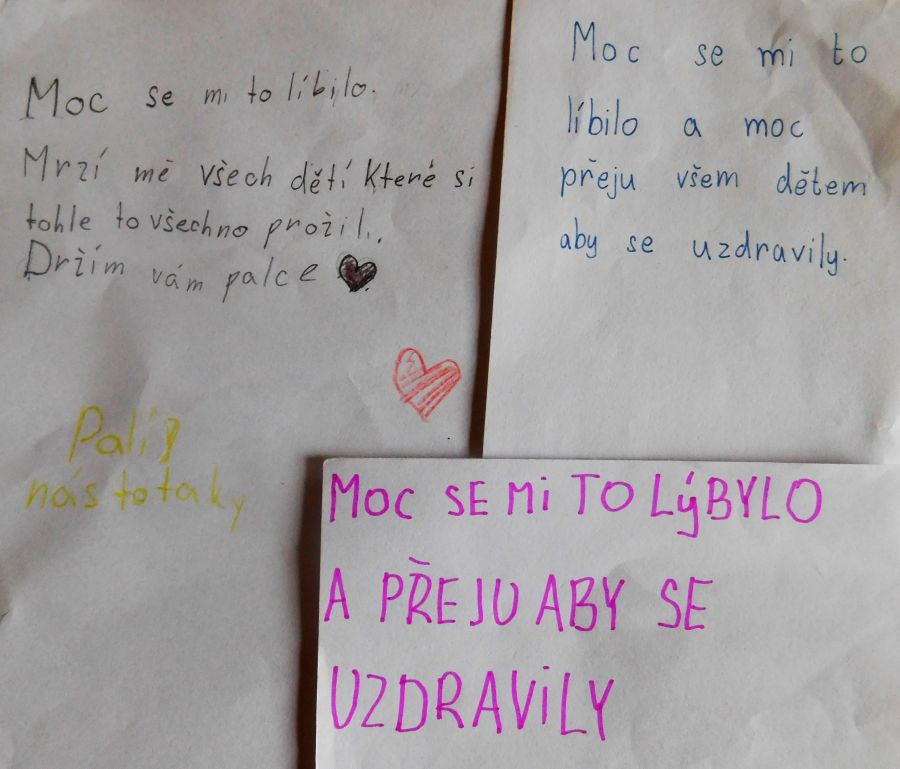 Moc se mi to líbilo.
Mrzí mě všech dětí které si
tohle to všechno prožili.
Držím vám palce
Palí
nás to taky
Moc se mi to
líbilo a moc
přeju všem dětem
aby se uzdravily.
MOC SE Mi TO LÝBYLO
A PŘEJU ABY SE
UZDRAViLY